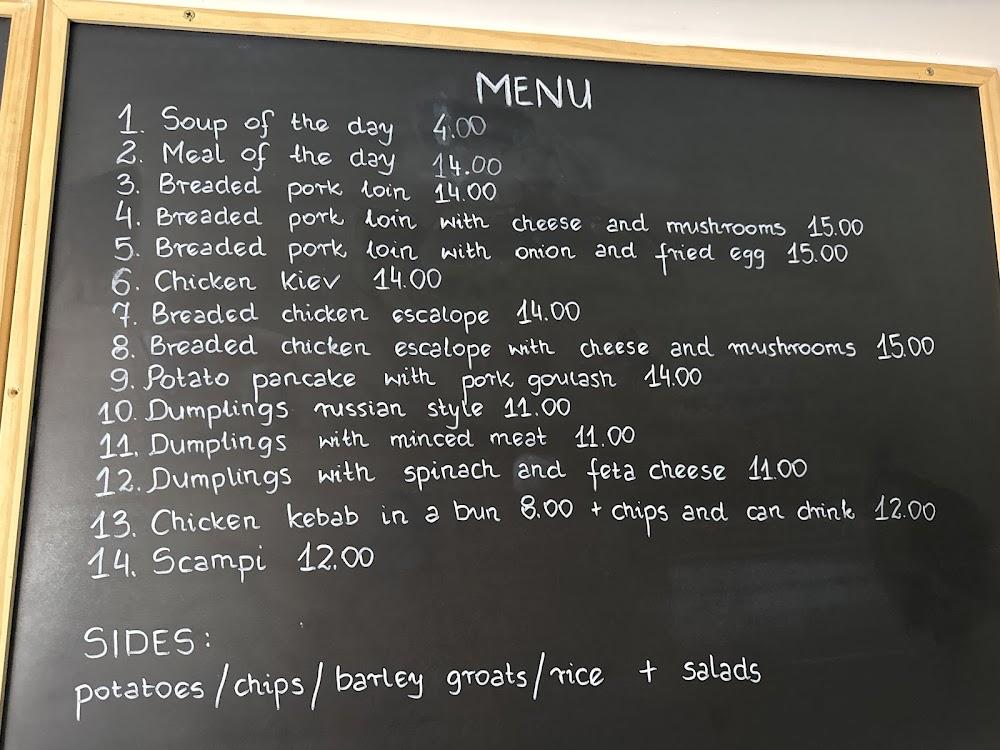 MENU
1. Soup of the day 4.00
2. Meal of the day 14.00
3. Breaded pork loin 14.00
4. Breaded pork loin with cheese and mushrooms 15.00
5. Breaded pork loin with onion and fried egg 15.00
6. Chicken kiev 14.00
7. Breaded chicken escalope 14.00
8. Breaded chicken escalope with cheese and mushrooms 15.00
9. Potato pancake with pork goulash 14.00
10. Dumplings russian style 11.00
11. Dumplings with minced meat 11.00
12. Dumplings with spinach and feta cheese 11.00
13. Chicken kebab in a bun 8.00 + chips and can drink 12.00
14. Scampi 12.00
SIDES:
potatoes/chips/barley groats/rice + salads